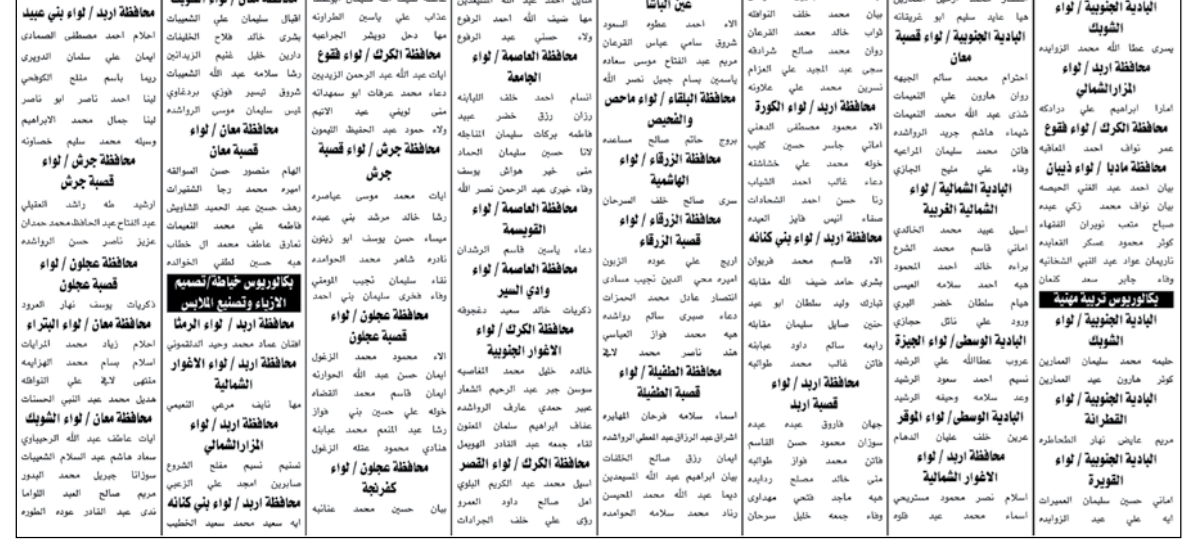 البادية الجنوبية / لواء
الشوبك
يسرى عطا الله محمد الزوايده
محافظة اربد / لواء
المزارالشمالي
امارا ابراهيم علي درادكه
محافظة الكرك / لواء فقوع
عمر نواف احمد المعاقبه
محافظة مادبا / لواء ذيبان
بيان احمد عبد الغني الحيصه
بيان نواف محمد زكي عبده
صباح متعب نويران الفقهاء
كوثر محمود عسكر القعايده
ناريمان عواد عبد النبي الشخانبه
وفاء جابر سعد كنعان
بكالوريوس تربية مهنية
البادية الجنوبية / لواء
الشوبك
حليمه محمد سليمان العمارين
كوثر هارون عيد العمارين
البادية الجنوبية / لواء
القطرانة
مريم عايض نهار الطحاطره
البادية الجنوبية / لواء
القويرة
اماني حسين سليمان العميرات
ايه علي عيد الزوايده
هيا عايد سليم ابو غريقانه
البادية الجنوبية / لواء قصبة
معان
احترام محمد سالم الجبهه
روان هارون علي النعيمات
شذى عبد الله محمد النعيمات
شيماء هاشم جريد الرواشده
فاتن محمد سليمان المراعيه
وفاء علي مليح الجازي
البادية الشمالية / لواء
الشمالية الغربية
اسيل عبيد محمد الخالدي
اماني قاسم محمد الشرع
براءه خالد احمد المحمود
هبه احمد سلامه العيسى
هيام سلطان خضر البري
ورود علي نائل حجازي
البادية الوسطى/ لواء الجيزة
عروب عطاالله علي الرشيد
نسيم احمد سعود الرشيد
وعد سلامه وحيفه الرشيد
البادية الوسطى/ لواء الموقر
عرين خلف عليان الدهام
محافظة اربد / لواء
الاغوار الشمالية
اسلام نصر محمود مستريحي
اسماء محمد عيد فلوه
بيان محمد خلف النوافله
ثواب خالد محمد القرعان
روان محمد صالح شرادقه
سجى عبد المجيد علي العزام
نسرين محمد علي علاونه
محافظة اربد / لواء الكورة
الاء محمود مصطفى الدهني
اماني جاسر حسين كليب
خوله محمد علي خشاشنه
دعاء غالب احمد الشياب
رنا حسن احمد الشحادات
صفاء انيس فايز العبده
محافظة اربد / لواء بني كنانه
الاء قاسم محمد فريوان
بشرى حامد ضيف الله مقابله
تبارك وليد سلطان ابو عيد
حنين صايل سليمان مقابله
رابعه سالم داود عبابنه
فاتن غالب محمد طوالبه
محافظة اربد / لواء
قصبة اربد
جهان فاروق عبده عبده
سوزان محمود حسن القاسم
فاتن محمد فواز طوالبه
منى خالد مصلح ردايده
هبه ماجد فتحي مهداوي
وفاء جمعه خليل سرحان
عين الباشا
الاء احمد عطوه السعود
شروق سامي عباس القرعان
مريم عبد الفتاح موسى سعاده
ياسمين بسام جميل نصر الله
محافظة البلقاء / لواء ماحص
والفحيص
بروج حاتم صالح مساعده
محافظة الزرقاء / لواء
الهاشمية
سرى صالح خلف السرحان
محافظة الزرقاء / لواء
قصبة الزرقاء
اريج علي عوده الزبون
اميره محي الدين نجيب مسادي
انتصار عادل محمد الحمزات
دعاء صبري سالم رواشده
هبه محمد فواز العباسي
هند ناصر محمد لافي
محافظة الطفيلة / لواء
قصبة الطفيلة
اسماء سلامه فرحان المهايره
اشراق عبد الرزاق عبد المعطي الرواشده
ايمان رزق صالح الخلفات
بيان ابراهيم عبد الله السبيعدين
ديما عبد الله محمد المحيسن
رناد محمد سلامه الحوامده
مها ضيف الله احمد الرفوع
ولاء حسني عيد الرفوع
محافظة العاصمة / لواء
الجامعة
انسام احمد خلف اللبابنه
رزان رزق خضر عبيد
فاطمه بركات سليمان المناجله
لانا حسين سليمان الحماد
منى خير هواش يوسف
وفاء خيري عبد الرحمن نصر الله
محافظة العاصمة / لواء
القويسمة
دعاء ياسين قاسم الرشدان
محافظة العاصمة / لواء
وادي السير
ذكريات خالد سعيد دغجوقه
محافظة الكرك / لواء
الاغوار الجنوبية
خالده خليل محمد المغاصبه
سوسن جبر عبد الرحيم الشعار
عبير حمدي عارف الرواشده
عفاف ابراهيم سلمان المعنون
لقاء جمعه عبد القادر الهويمل
محافظة الكرك / لواء القصر
اسيل محمد عبد الكريم البلوي
امل صالح داود العمرو
رؤى علي خلف الجرادات
عذاب علي ياسين الطراونه
مها دحل دويشر الجراعيه
محافظة الكرك / لواء فقوع
ايات عبد الله عبد الرحمن الزيديين
دعاء محمد عرفات ابو سمهدانه
منى لويني عيد الاثيم
ولاء حمود عبد الحفيظ الليمون
محافظة جرش / لواء قصبة
جرش
ايات محمد موسى عياصره
رشا خالد مرشد بني عبده
ميساء حسن يوسف ابو زيتون
نادره شاهر محمد الحوامده
نقاء سليمان نجيب المومني
وفاء فخري سليمان بني احمد
محافظة عجلون / لواء
قصبة عجلون
الاء محمود محمد الزغول
ايمان حسن عبد الله الحوارنه
ايمان قاسم محمد القضاه
خوله علي حسين بني فواز
رشا عبد المنعم محمد عبابنه
هنادي محمود عقله الزغول
محافظة عجلون / لواء
كفرنجة
بيان حسين محمد عنانبه
اقبال سليمان علي الشعيبات
بشرى خالد فلاح الخليفات
دارين خليل غنيم الزيدانين
رشا سلامه عبد الله الشعيبات
شروق تيسير فوزي بردغاوي
ليس سليمان موسى الرواشده
محافظة معان / لواء
قصبة معان
الهام منصور حسن السوالقه
اميره محمد رجا الشقيرات
رهف حسين عبد الحميد الشاويش
فاطمه علي محمد النعيمات
نمارق عاطف محمد ال خطاب
هبه حسين لطفي الخوالده
بكالوريوس خياطة/تصميم
الازياء وتصنيع الملابس
محافظة اربد / لواء الرمثا
افنان عماد محمد وحيد الدلقموني
محافظة اربد / لواء الاغوار
الشمالية
مها نايف مرعي النعيمي
محافظة اربد / لواء
المزارالشمالي
تسنيم نسيم مفلح الشروع
صابرين امجد علي الزعبي
محافظة اربد / لواء بني كنانه
ايه سعيد محمد سعيد الخطيب
محافظة اربد / لواء بني عبيد
احلام احمد مصطفى الصمادي
ايمان علي سلمان الدويري
ريما باسم مفلح الكوفحي
لينا احمد ناصر ابو ناصر
لينا جمال محمد الابراهيم
وسيله محمد سليم خصاونه
محافظة جرش / لواء
قصبة جرش
ارشيد طه راشد العقيلي
عبد الفتاح عبد الحافظ محمد حمدان
عزيز ناصر حسن الرواشده
محافظة عجلون / لواء
قصبة عجلون
ذكريات يوسف نهار العرود
محافظة معان / لواء البتراء
احلام زياد محمد المرايات
اسلام بسام محمد الهزايمه
منتهى لافي علي النوافله
هديل محمد عبد النبي الحسنات
محافظة معان / لواء الشوبك
ايات عاطف عبد الله الرحيباوي
سعاد هاشم عبد السلام الشعيبات
سوزانا جبريل محمد البدور
مريم صالح العبد اللواما
ندى عبد القادر عوده الطوره